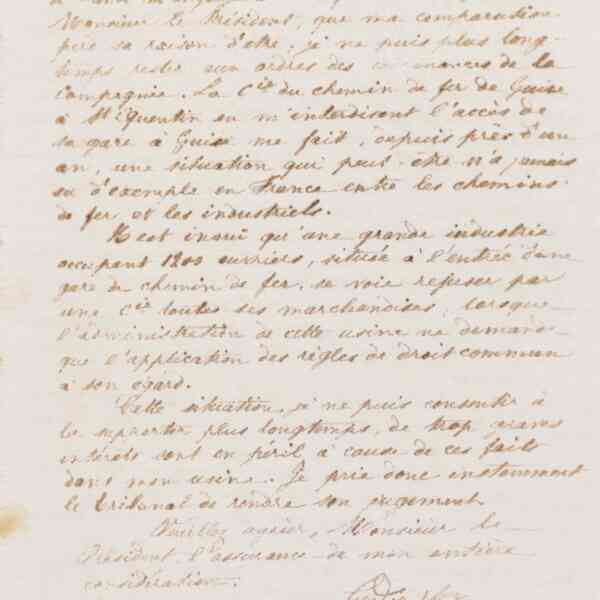 Monsieur le Président, que ma comparution
perd sa raison d'être; je ne puis plus long-
temps rester aux ordres des convenances de la
Compagnie. La Cie du chemin de fer de Guise
à St Quentin en m'interdisant l'accès de
sa gare à Guise me fait, depuis près d'un
an, une situation qui peut-être n'a jamais
eu d'exemple en France entre les chemins
de fer et les industriels.
Il est inouï qu'une grande industrie
occupant 1200 ouvriers, située à l'entrée d'une
gare de chemin de fer, se voie refuser par
une Cie toutes ses marchandises, lorsque
l'administration de cette usine ne demande
que l'application des règles de droit commun
à son égard.
Cette situation, je ne puis consentir à
la supporter plus longtemps, de trop graves
intérêts sont en péril à cause de ces faits
dans mon usine. Je prie donc instamment
le tribunal de rendre son jugement.
Veuillez agréer, Monsieur le
Président, l'assurance de mon entière
considération.